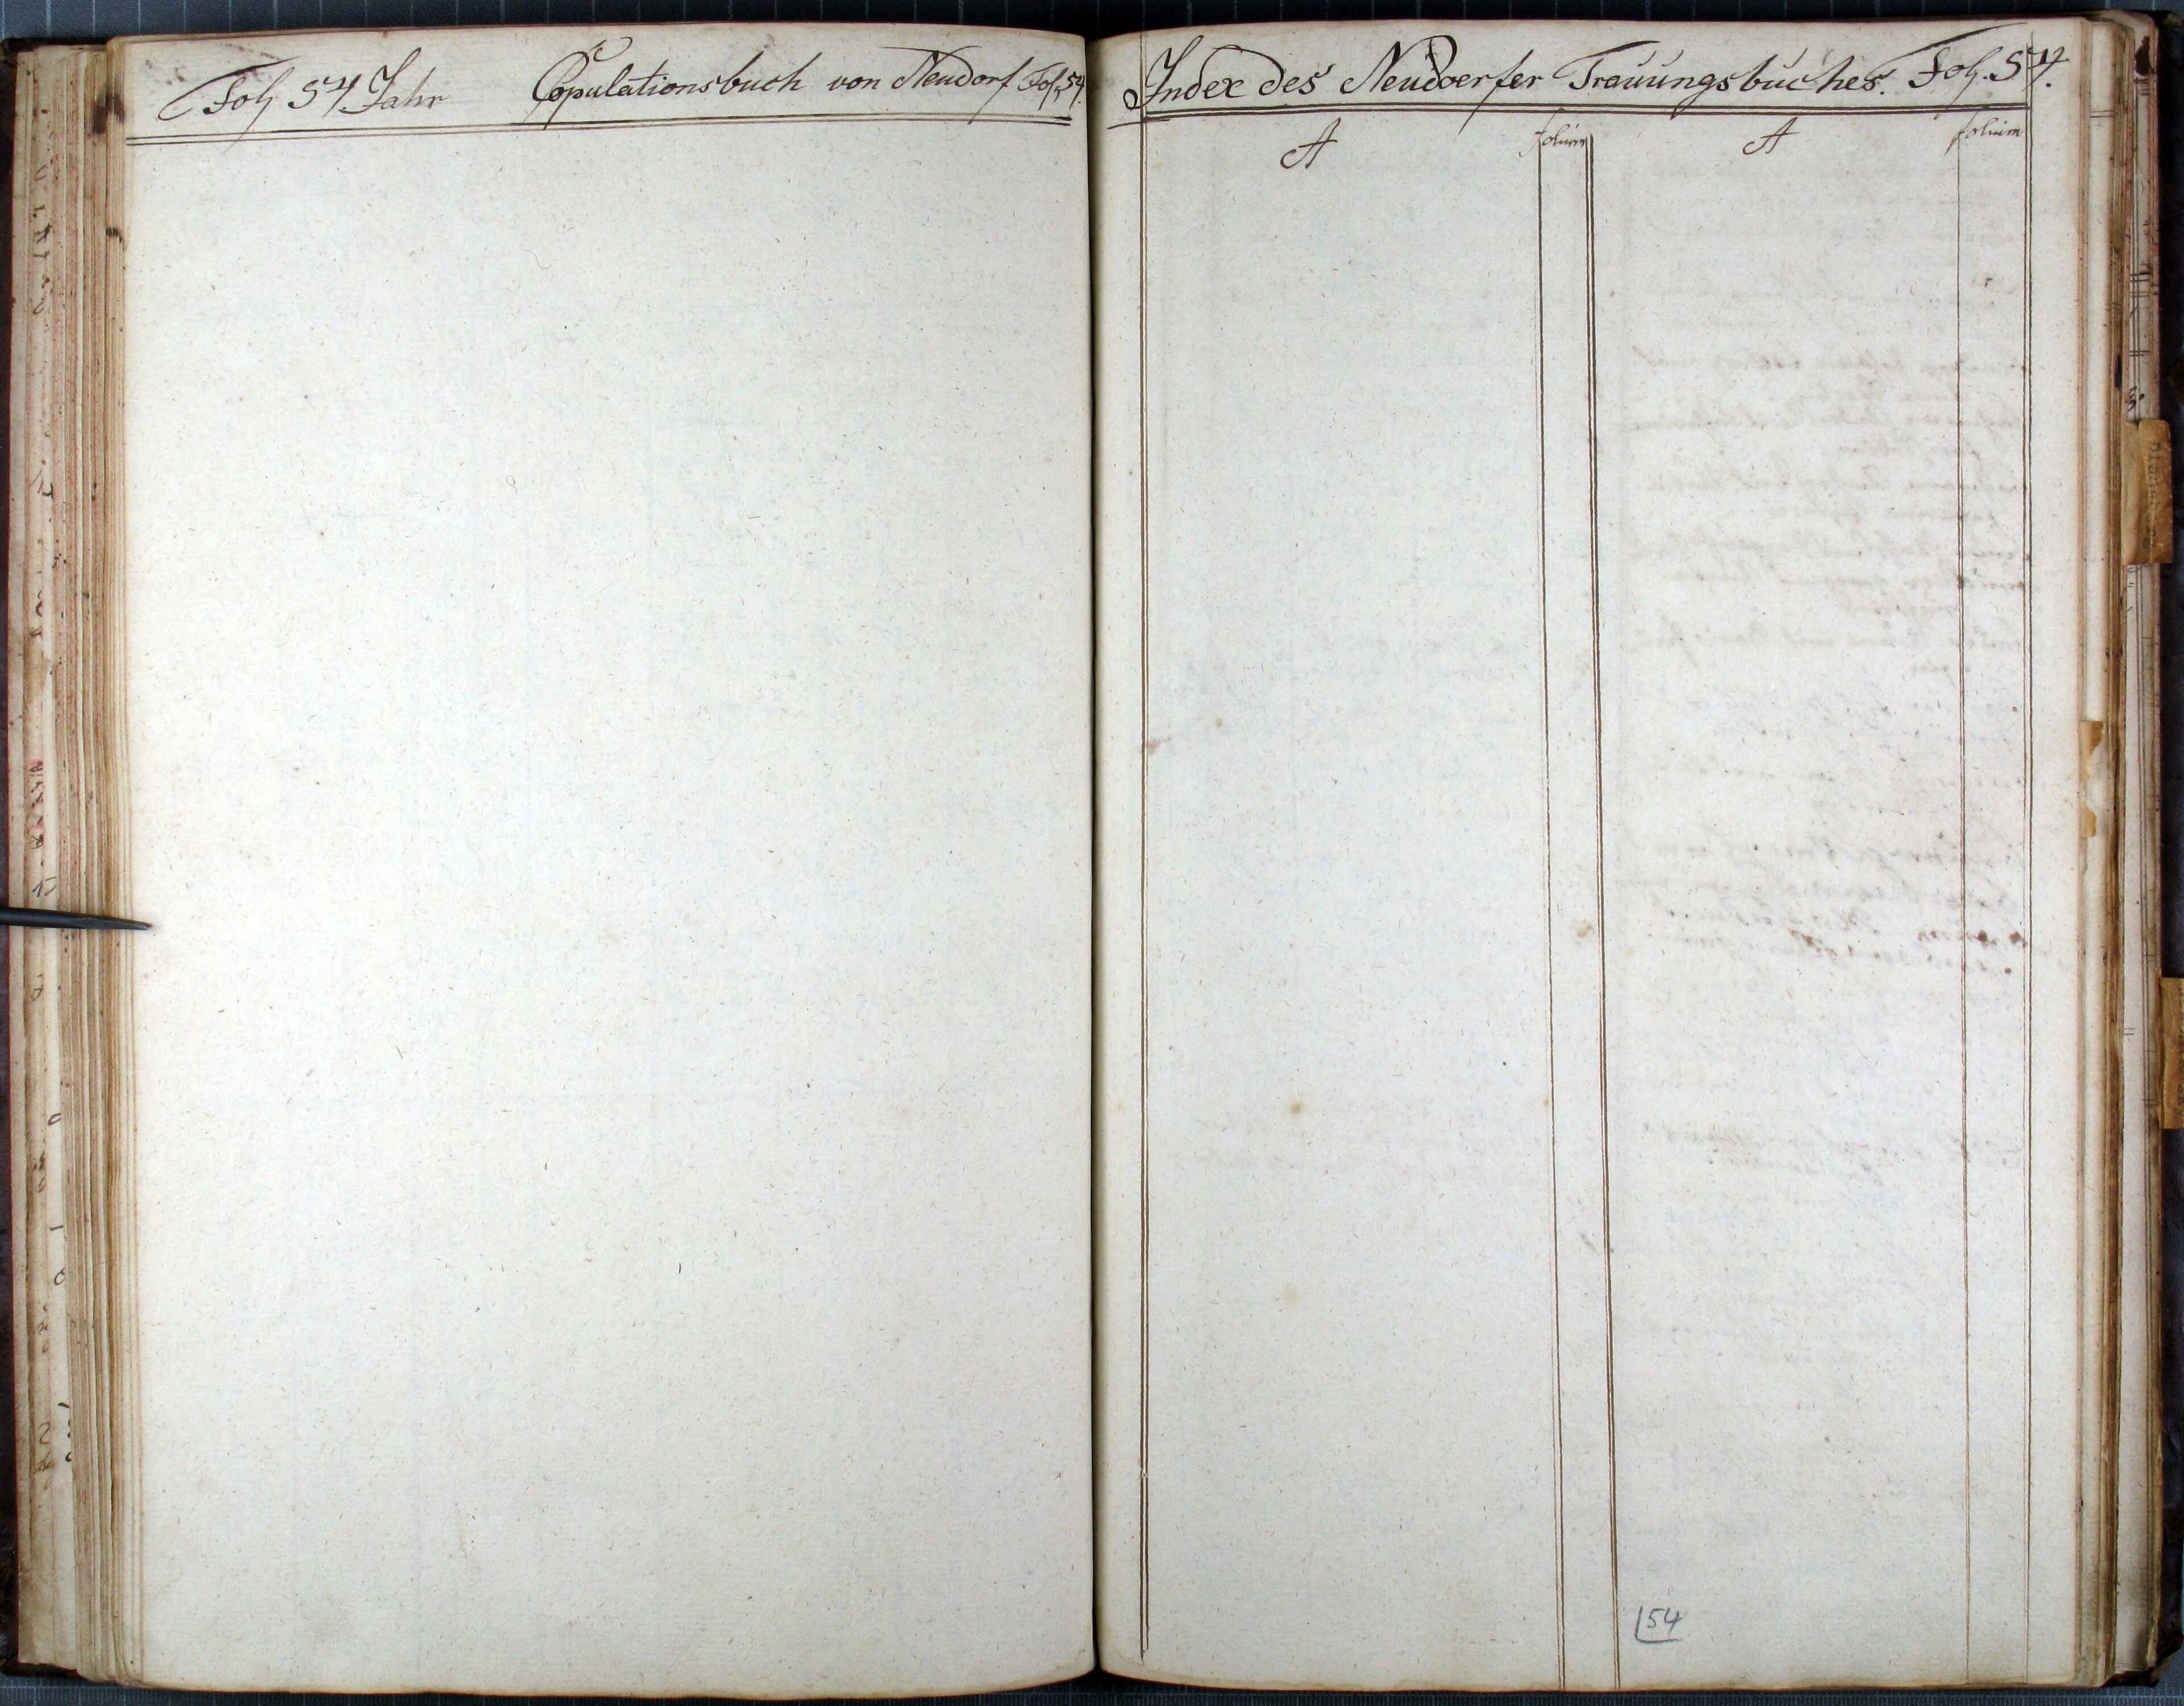 Fol 54. Jahr Copulationsbuch von Neudorf Fol. 54.
Index des Neudoerfer Trauungsbuches. Fol. 54.
A folium A folium
54